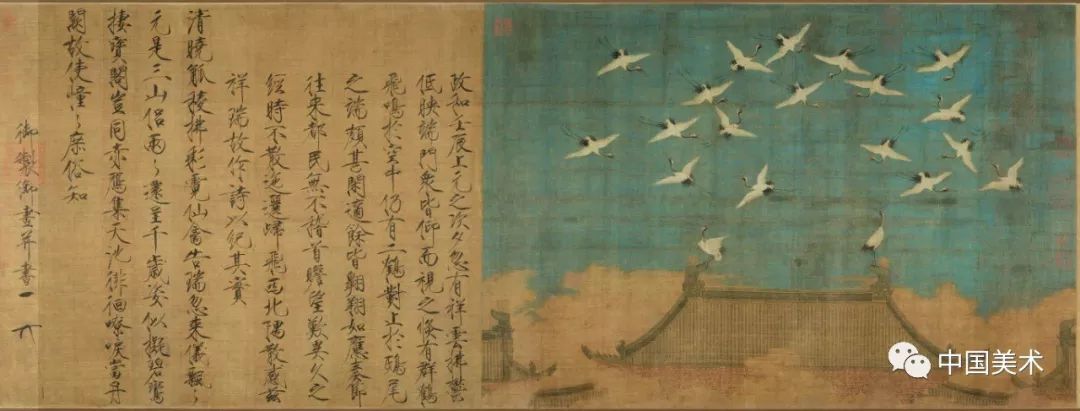 政和壬辰上元之次夕忽有祥雲拂鬱
低映端門衆皆仰而視之倏有群鶴
飛鳴於空中仍有二鶴對止於鴟尾
之端頗甚閑適餘皆翱翔如應奏節
往來都民無不稽首瞻望歎異久之
經時不散迤邐歸飛西北隅散感茲
祥瑞故作詩以紀其實
清曉觚稜拂彩霓仙禽告瑞忽來儀飄〻
元是三山侶兩〻還呈千歲姿似擬碧鸞
棲寶閣豈同赤鴈集天池徘徊嘹唳當丹
闕故使憧〻庶俗知
御製御畫并書
中国美术